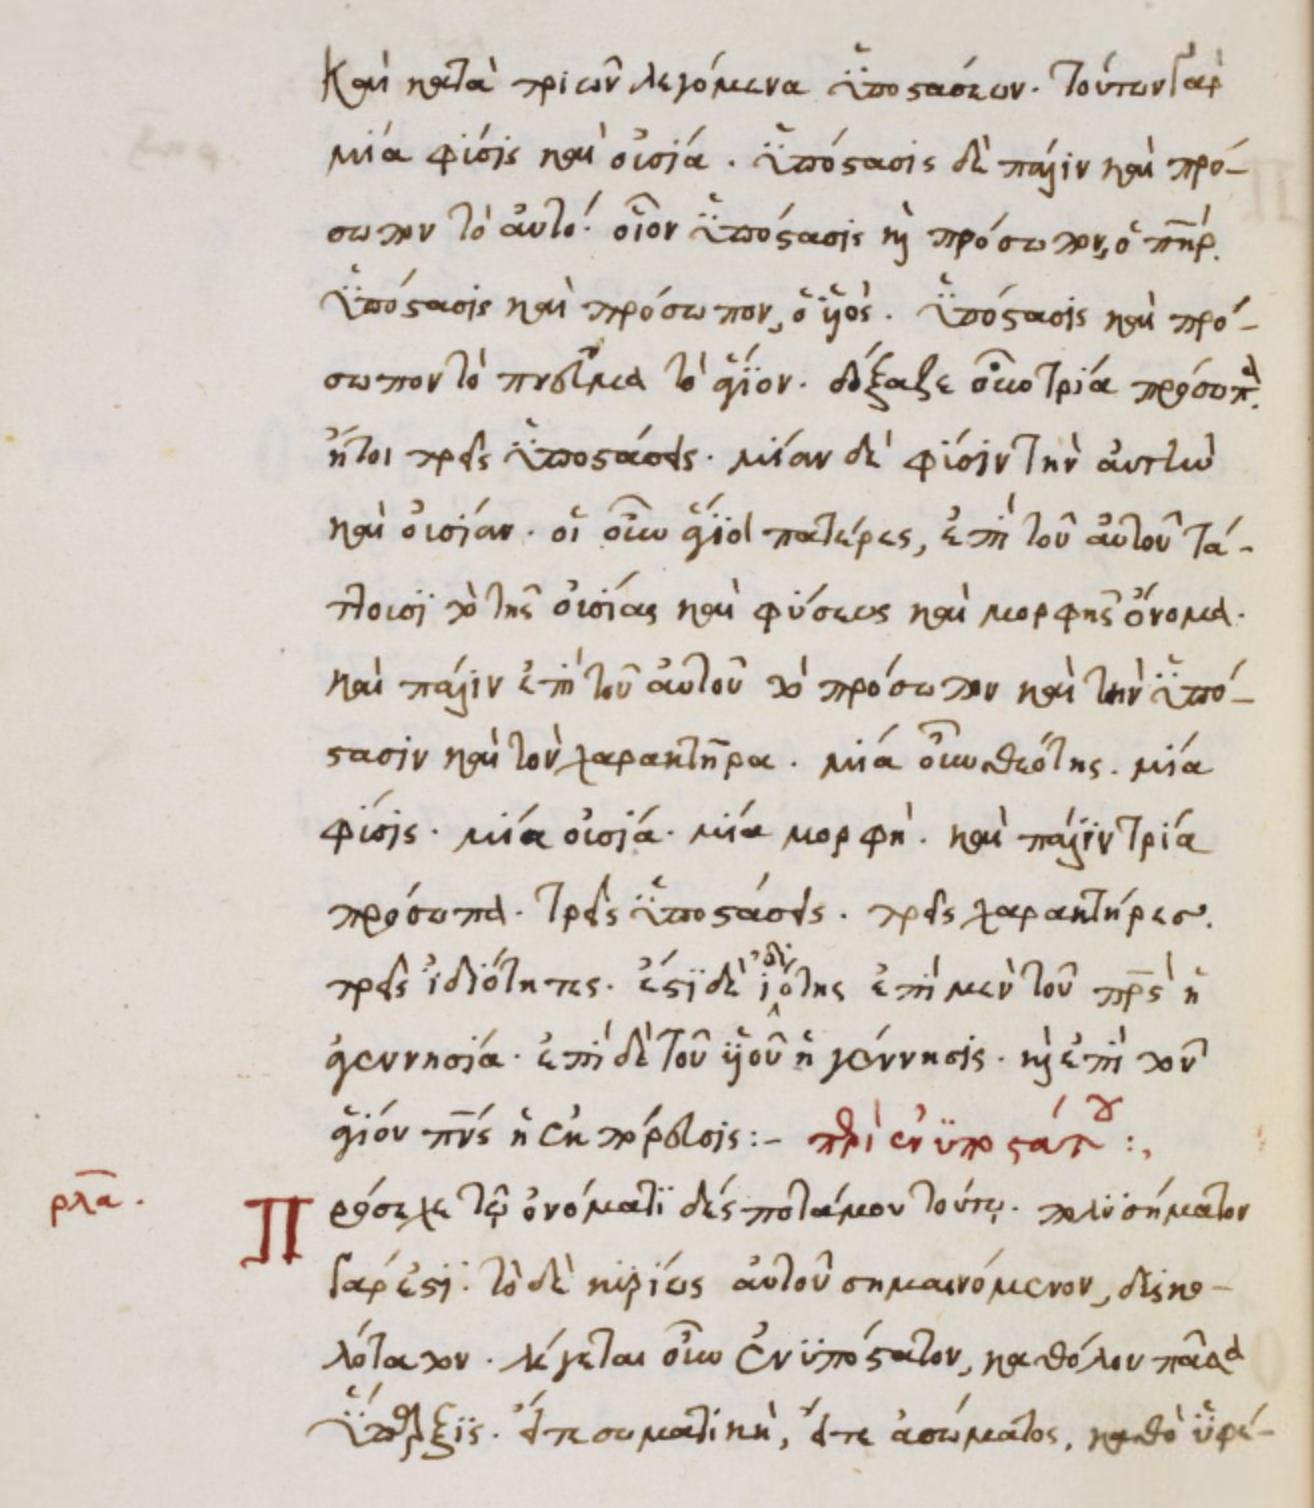 Καὶ κατὰ τριῶν λεγόμενα ὑποστάσεων. τούτων γὰρ
μία φύσις καὶ οὐσία. ὑπόστασις δὲ πάλιν καὶ πρό-
σωπον τὸ αὐτό. οἷον ὑπόστασις κ̀ πρόσωπον, ὁ π̅η̅ρ.
ὑπόστασις καὶ πρόσωπον, ὁ υἱός. ὑπόστασις καὶ πρό-
σωπον τὸ πνεῦμα τὸ ἅγϊον. δόξαζε οὖν τρία πρόσωπα.
ἤτοι τρεῖς ὑποστάσεις. μίαν δὲ φύσιν τὴν αὐτὴν
καὶ οὐσίαν. οἱ οὖν ἅγϊοι πατέρες, ἐπὶ τοῦ αὐτοῦ τά-
ττουσϊ τὸ τῆς οὐσίας καὶ φύσεως καὶ μορφῆς ὄνομα.
καὶ πάλιν ἐπὶ τοῦ αὐτοῦ τὸ πρόσωπον καὶ τὴν ὑπό-
στασιν καὶ τὸν χαρακτῆρα. μία οὖν θεότης. μία
φύσις. μία οὐσία. μία μορφή. καὶ πάλϊν τρία
πρόσωπα. τρεῖς ὑποστάσεις. τρεῖς χαρακτήρες.
τρεῖς ἰδϊότητες. ἔστϊ δὲ ἰδιότης ἐπὶ μὲν τοῦ π̅ρ̅ς ἡ
ἀγεννησία. ἐπὶ δὲ τοῦ υἱοῦ ἡ γέννησις. κ̀ ἐπὶ τοῦ
ἁγίου π̅ν̅ς ἡ ἐκπόρευσις:- περὶ ἐνϋποστάτου:,
ρλα.
Πρόσεχε τῷ ὀνόματϊ δέσποτά μου τούτῳ. πολϋσήματον
γάρ ἐστϊ. τὸ δὲ κυρίως αὐτοῦ σημαινόμενον, δυσκο-
λότατον. λέγεται οὖν ἐνϋπόστατον, καθόλου πᾶσα
ὕπαρξϊς. εἴτε σωματϊκὴ, εἴτε ἀσώματος, καθὸ ὑφέ-